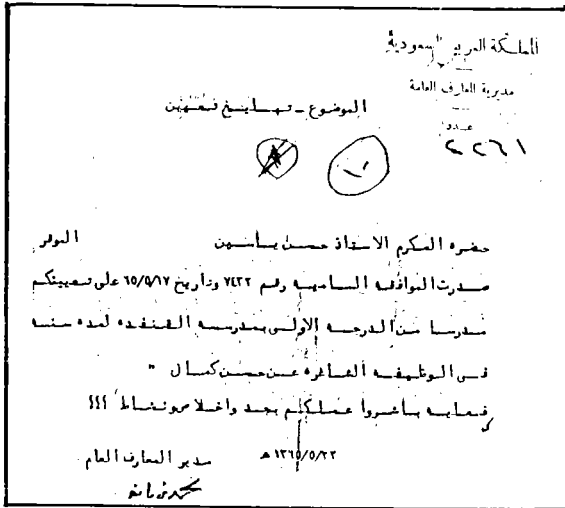 المملكة العربية السعودية
مديرية المعارف العامة
عدد
٤٢٦١
الموضوع ـ تبليغ تعيين
١٠
حضره المكرم الاستاذ حسن ياسين الموقر
صدرت الموافقه الساميه رقم ٧٤٢٢ وتاريخ ٦٥/٥/١٧ على تعيينكم
مدرسا من الدرجه الاولى بمدرسه القنفده لمده سنه
فى الوظيفه الشاغره عن حسن كمال "
فعليه باشروا عملكم بجد واخلاص ونشاط !!!
١٣٦٥/٥/٢٣ هـ
مدير المعارف العام